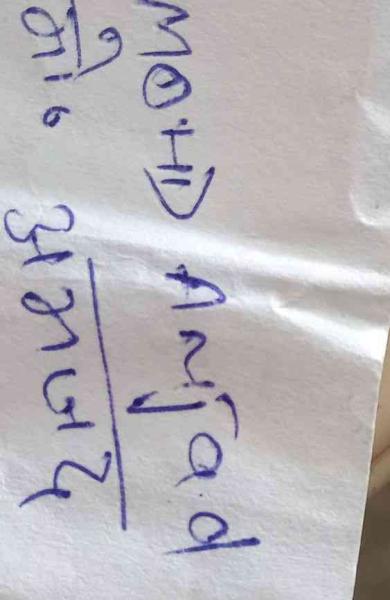 MOHD Amjad
मो० अमजद